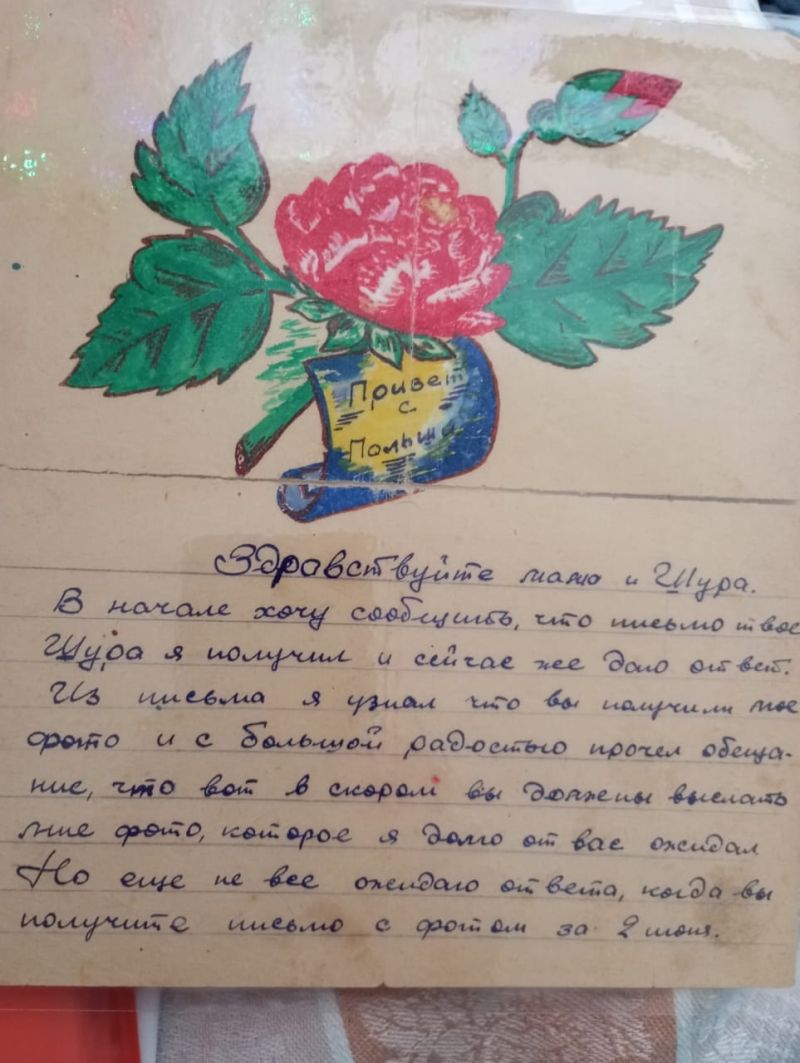 Привет
с
Польши
Здравствуйте мама и Шура.
В начале хочу сообщить, что письмо твое
Шура я получил и сейчас же даю ответ.
Из письма я узнал что вы получили мое
фото и с большой радостью прочел обеща-
ние, что вот в скором вы должены выслать
мне фото, которое я долго от вас ожидал
Но еще не все ожидаю ответа, когда вы
получите письмо с фотом за 2 июня.